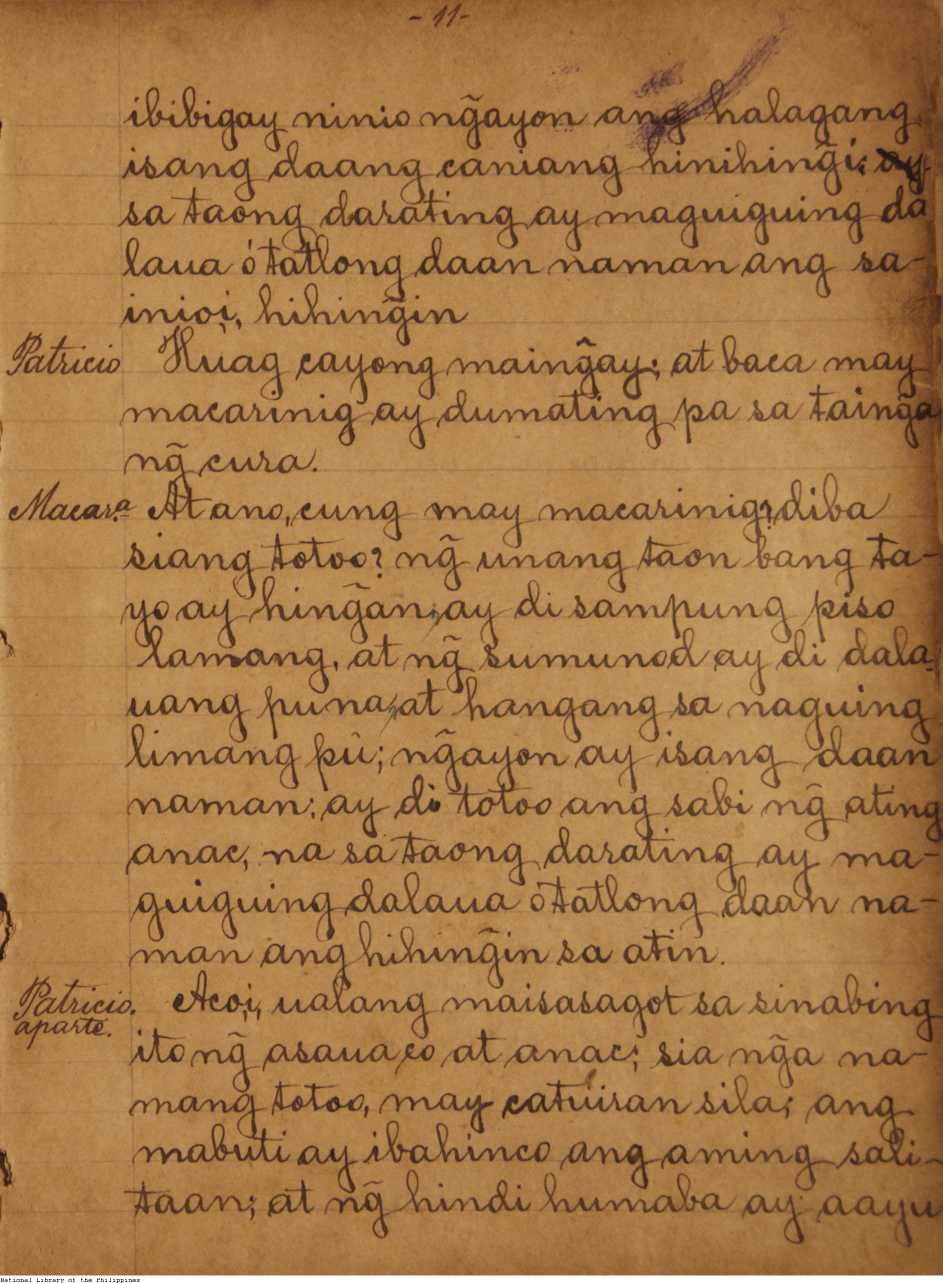 - 11 -
ibibigay ninio ng̃ayon ang halagang
isang daang caniang hinihing̃i;
sa taong darating ay maguiguing da
laua ó tatlong daan naman ang sa-
inioi, hihing̃in
Patricio Huag cayong maing̃ay; at baca may
macarinig ay dumating pa sa taing̃a
ng̃ cura.
Macar.ª At ano, cung may macarinig? diba
siang totoo? ng̃ unang taon bang ta-
yo ay hing̃an, ay di sampung piso
lamang, at ng̃ sumunod ay di dala-
uang puna, at hangang sa naguing
limang pû; ng̃ayon ay isang daan
naman; ay di totoo ang sabi ng̃ ating
anac, na sa taong darating ay ma-
guiguing dalaua ó tatlong daan na-
man ang hihing̃in sa atin.
Patricio. Acoi, ualang maisasagot sa sinabing
aparte.
ito ng̃ asaua co at anac; sia ng̃a na-
mang totoo, may catuiran sila; ang
mabuti ay ibahinco ang aming sali-
taan; at ng̃ hindi humaba ay aayu
National Library of the Philippines